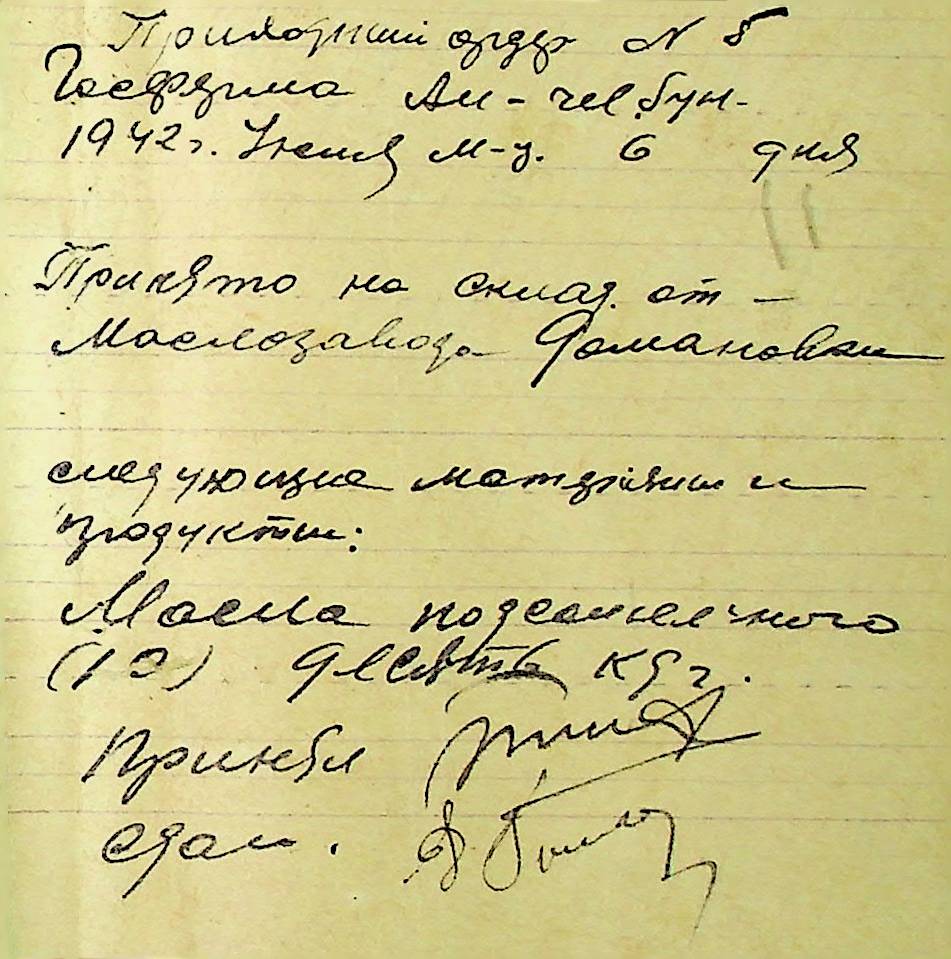 Приходный ордер N 5
Госферма Ак-чел.бун-
1942г. Июня м-ц. 6 дня
Принято на склад. от -
Маслозавода Романовки
следующие материялы и
продукты:
Масла подсолнечного
(10) десять кгг.
Принял
сдал.